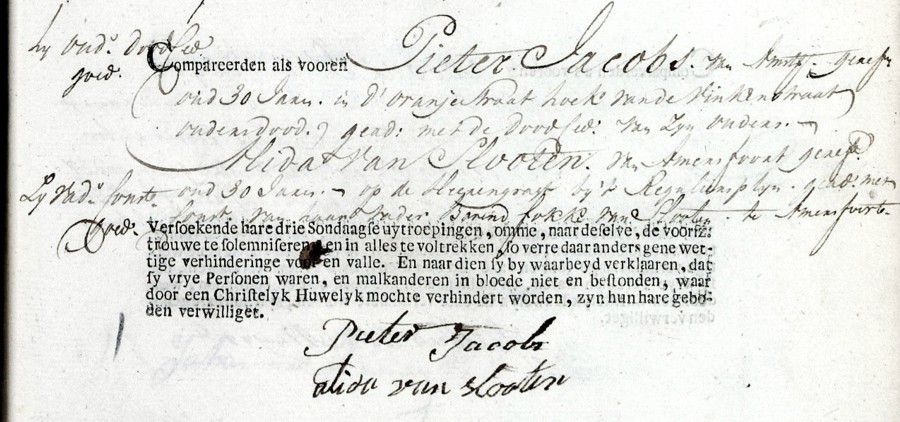 zy oud.s doodced
goed.
Compareerden als vooren Pieter Jacobs. van Amst. geref
oud 30 Jaar. in d'oranjestraat hoek vande vinkenstraat
ouders dood. gead: met de doodced: van zyn ouders.
Alida van Slooten. van Amersfoort geref.
oud 30 Jaar. op de by't Reguliersplyn. gead: met
van haar vader Barend van Slooten. te Amersfoort
goed.
Versoekende hare drie Sondaagse uytroepingen, omme, naar deselve, de voorsz:
trouwe te solemniseren, en in alles te voltrekken, so verre daar anders gene wet-
tige verhinderinge voor en valle. En naar dien sy by waarheyd verklaaren, dat
sy vrye Personen waren, en malkanderen in bloede niet en bestonden, waar
door een Christelyk Huwelyk mochte verhindert worden, zyn hun hare gebo-
den verwilliget.
Pieter Jacobs
alida van slooten